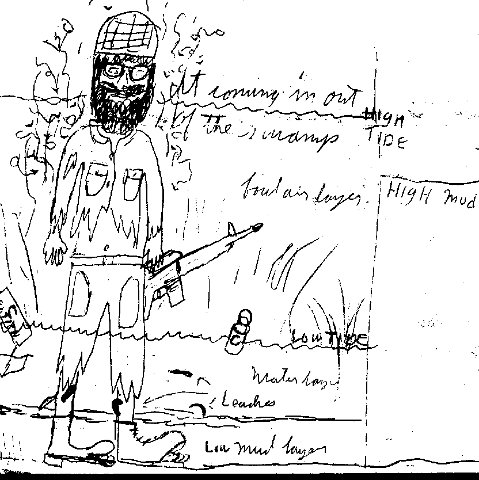 coming in out
HIGH
TIDE
of the swamps
layer.
HIGH mud
LOW TIDE
Water laye
Leaches
Low mud layer